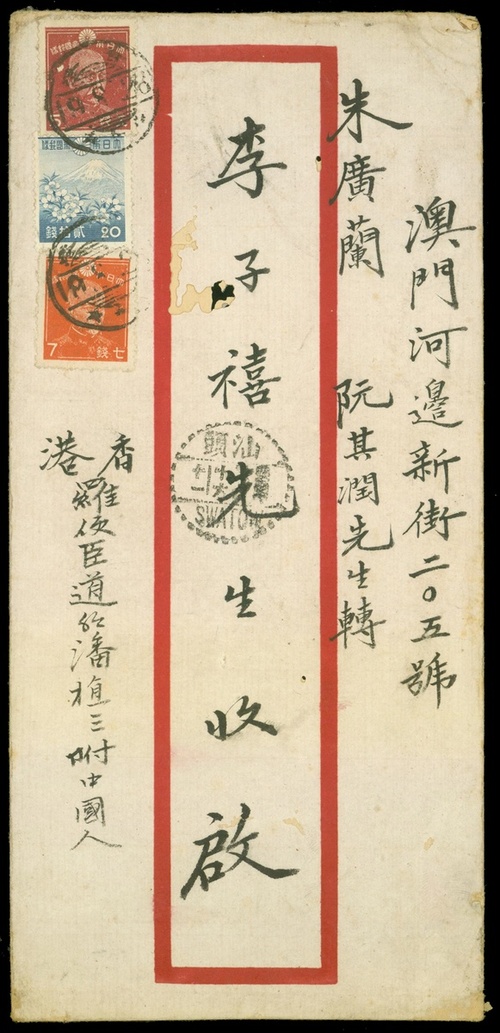 澳門河邊新街二〇五號
朱廣蘭 阮其潤先生轉
李子禧先生收啟
香港
羅便臣道红潘植三附中國人
汕頭
SWATOW
大日本帝國郵便
大日本帝國郵便
20
貳拾錢
大日本帝國郵便
7
七錢